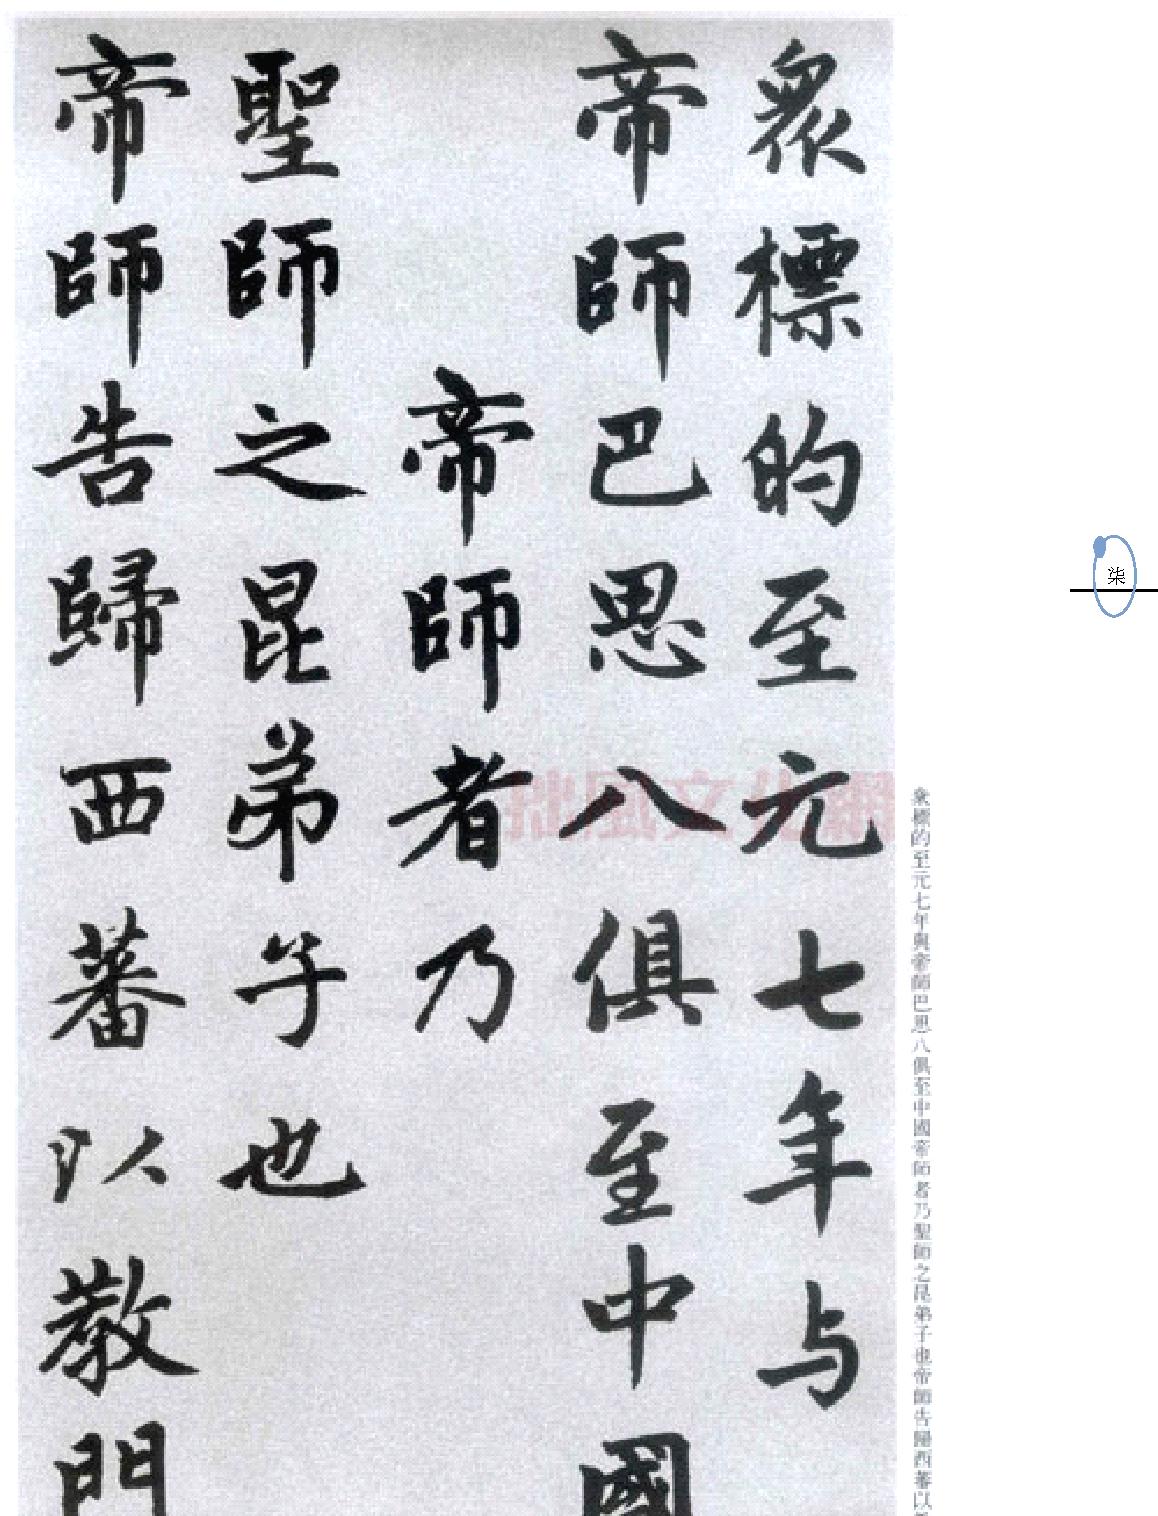 眾標的至元七年与
帝師巴思八俱至中國
帝師者乃
聖師之昆弟子也
帝師告歸西蕃以教門
拙風文化網
眾標的至元七年與帝師巴思八俱至中國帝師者乃聖師之昆弟子也帝師告歸西蕃以
柒